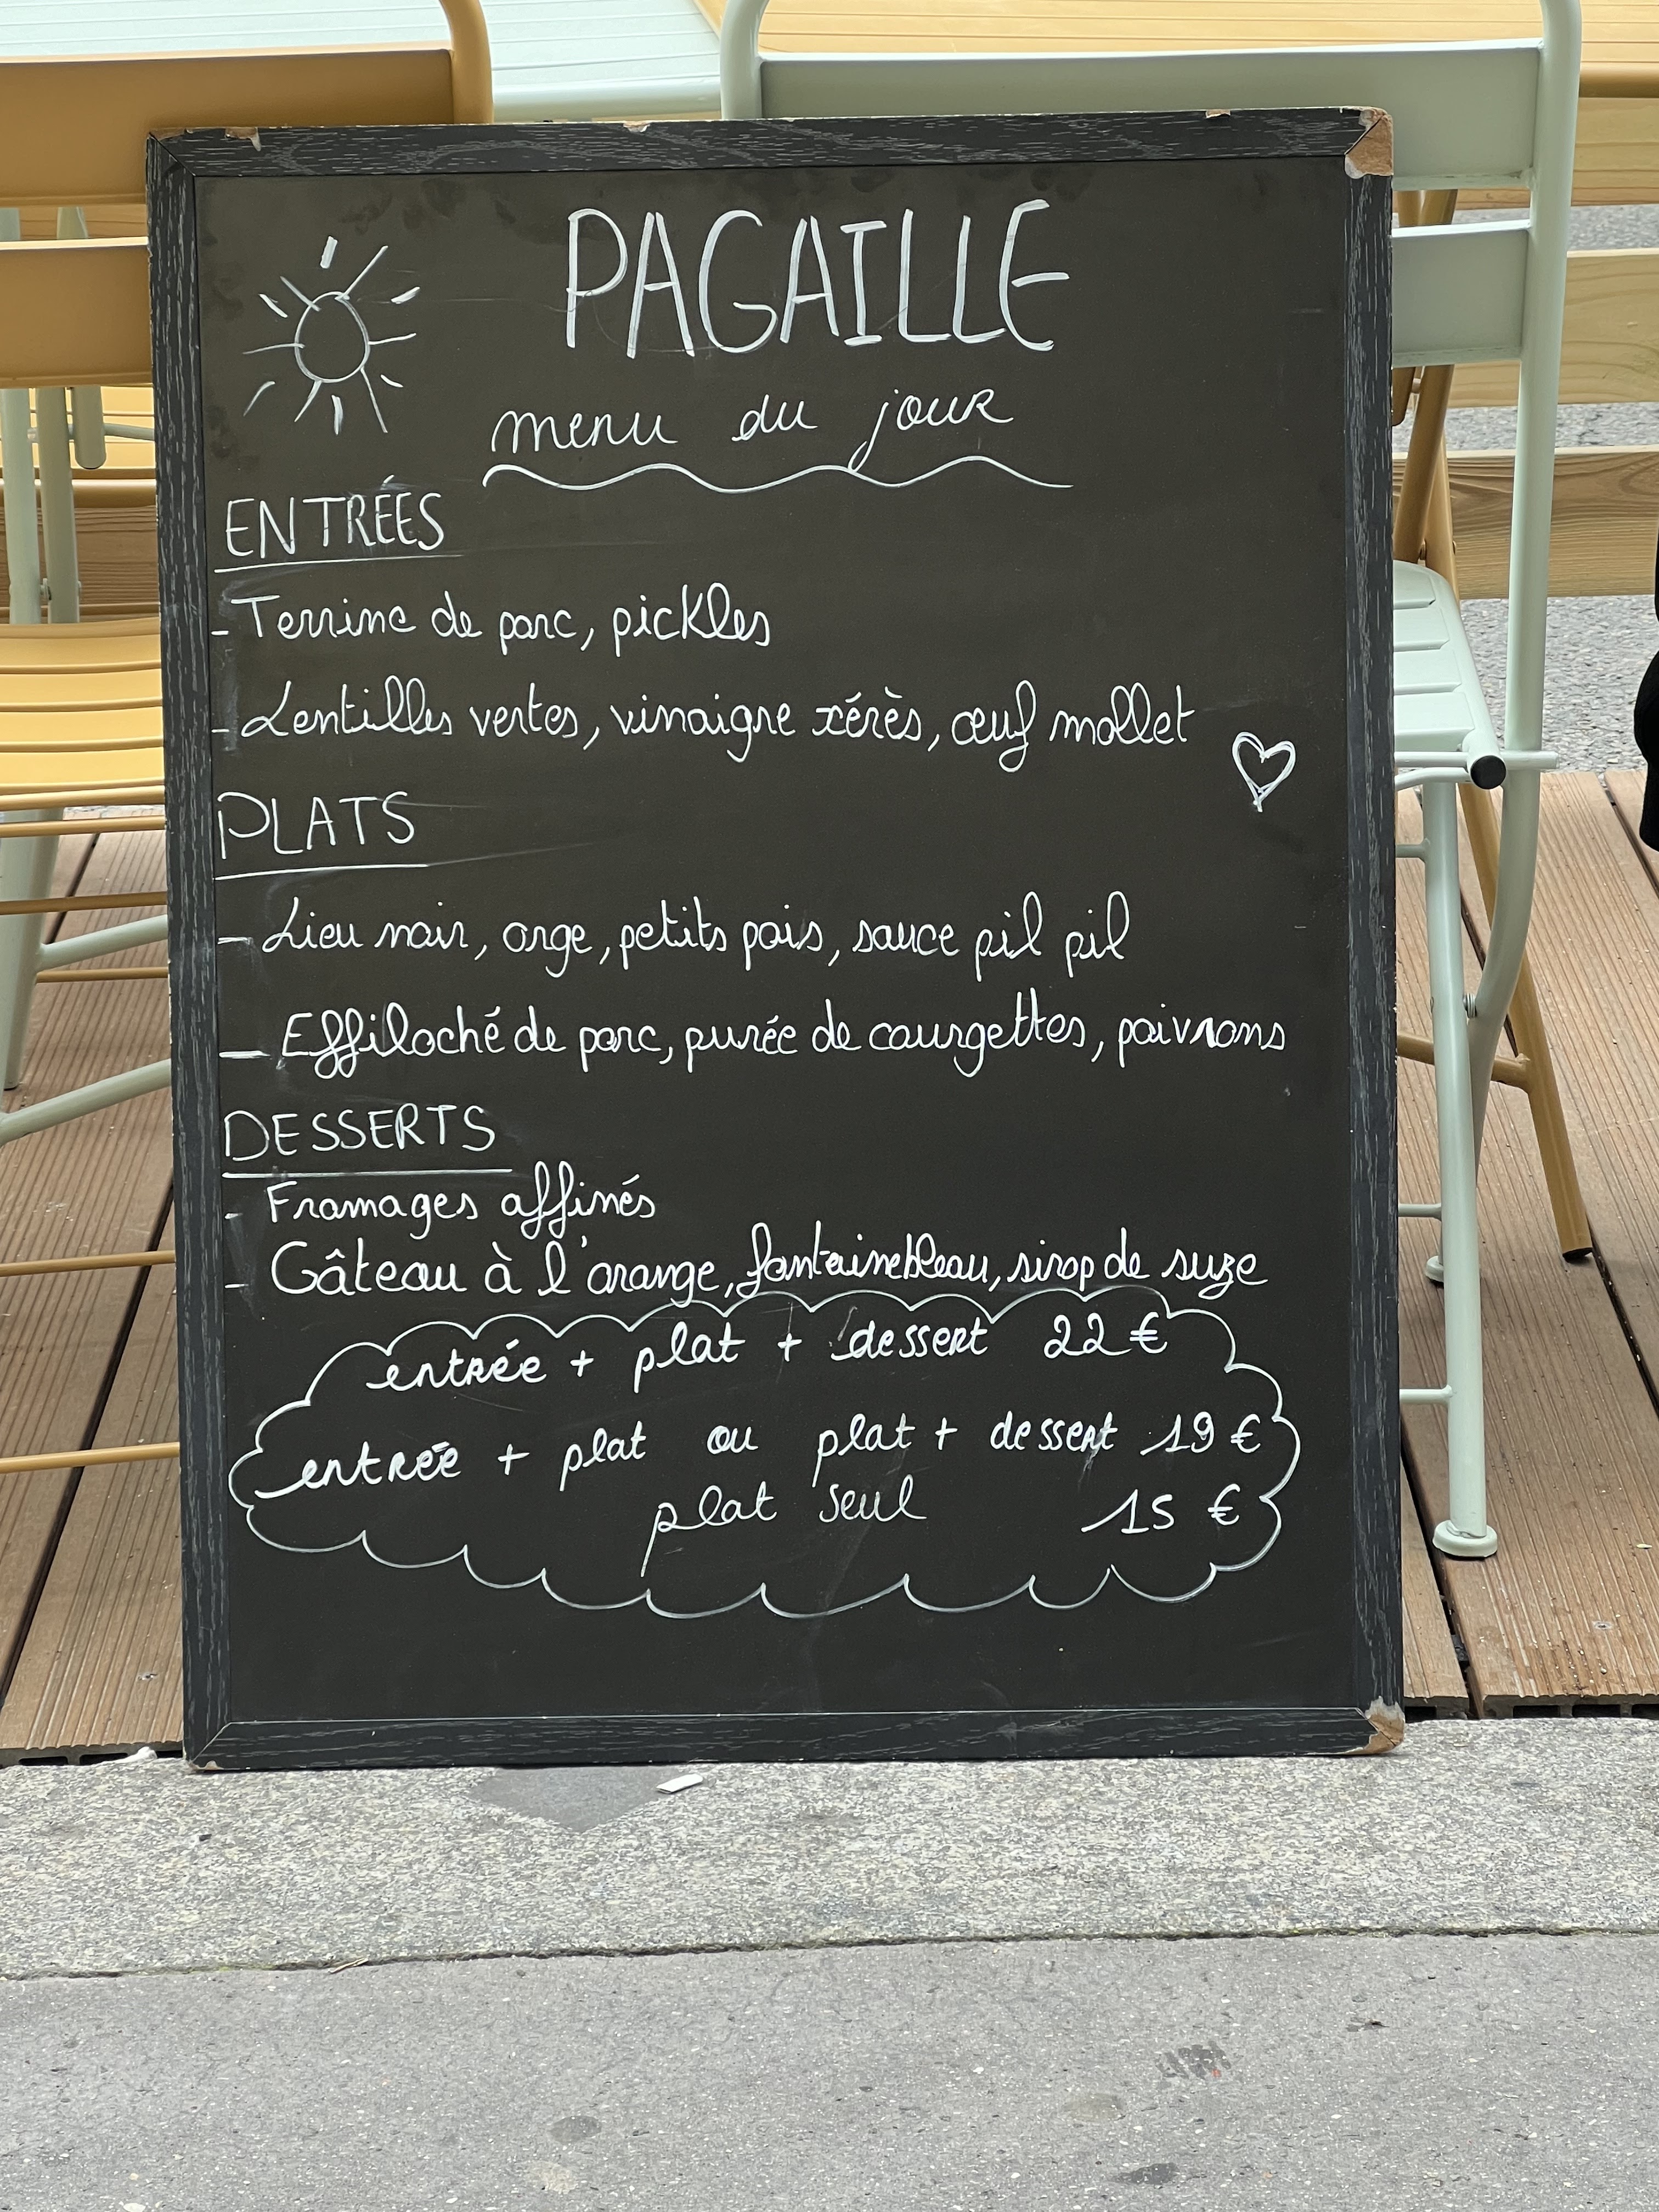 PAGAILLE
menu du jour
ENTRÉES
- Terrine de porc, pickles
- Lentilles vertes, vinaigre xérès, œuf mollet
PLATS
- Lieu noir, orge, petits pois, sauce pil pil
- Effiloché de porc, purée de courgettes, poivrons
DESSERTS
- Fromages affinés
- Gâteau à l'orange, fontainebleau, sirop de suze
entrée + plat + dessert 22 €
entrée + plat ou plat + dessert 19 €
plat seul 15 €